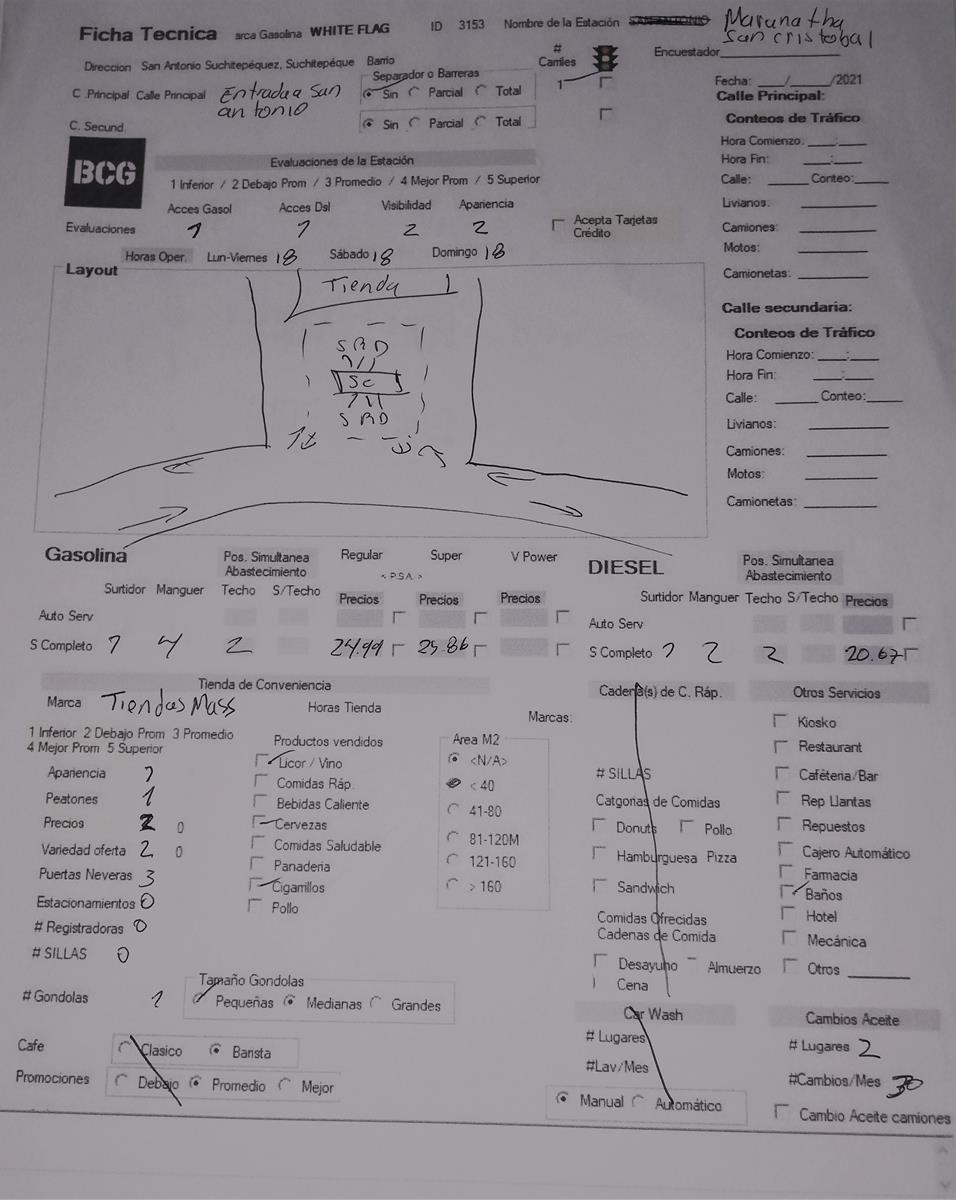 Ficha Tecnica arca Gasolina WHITE FLAG ID 3153 Nombre de la Estación Maranatha
San cristobal
Direccion San Antonio Suchitepéquez, Suchitepéque Barrio
# Carriles
Encuestador
C .Principal Calle Principal Entrada a San
antonio
Separador o Barreras
Sin Parcial Total
1
C. Secund
Sin Parcial Total
Fecha: ___/___/2021
Calle Principal:
Conteos de Tráfico
Hora Comienzo: ___:___
Hora Fin: ___:___
Calle: ___ Conteo: ___
Livianos:
Camiones:
Motos:
Camionetas:
BCG
Evaluaciones de la Estación
1 Inferior / 2 Debajo Prom / 3 Promedio / 4 Mejor Prom / 5 Superior
Acces Gasol Acces Dsl Visibilidad Apariencia
Evaluaciones 1 1 2 2
Acepta Tarjetas
Crédito
Horas Oper. Lun-Viernes 18 Sábado 18 Domingo 18
Layout
Tienda
S R D
SC
S R D
Calle secundaria:
Conteos de Tráfico
Hora Comienzo: ___:___
Hora Fin: ___:___
Calle: ___ Conteo: ___
Livianos:
Camiones:
Motos:
Camionetas:
Gasolina
Pos. Simultanea
Abastecimiento
Regular Super V Power
< P.S.A. >
Surtidor Manguer Techo S/Techo Precios Precios Precios
Auto Serv
S Completo 1 4 2 24.99 25.86
DIESEL
Pos. Simultanea
Abastecimiento
Surtidor Manguer Techo S/Techo Precios
Auto Serv
S Completo 1 2 2 20.67
Tienda de Conveniencia
Marca Tiendas Mass Horas Tienda
Marcas:
1 Inferior 2 Debajo Prom 3 Promedio
4 Mejor Prom 5 Superior
Apariencia 1
Peatones 1
Precios 2 0
Variedad oferta 2 0
Puertas Neveras 3
Estacionamientos 0
# Registradoras 0
# SILLAS 0
Productos vendidos
Licor / Vino
Comidas Ráp.
Bebidas Caliente
Cervezas
Comidas Saludable
Panaderia
Cigarrillos
Pollo
Area M2
<N/A>
< 40
41-80
81-120M
121-160
> 160
# Gondolas 1
Tamaño Gondolas
Pequeñas Medianas Grandes
Cafe Clasico Barista
Promociones Debajo Promedio Mejor
Cadena(s) de C. Ráp.
# SILLAS
Catgorias de Comidas
Donuts Pollo
Hamburguesa Pizza
Sandwich
Comidas Ofrecidas
Cadenas de Comida
Desayuno Almuerzo
Cena
Car Wash
# Lugares
#Lav/Mes
Manual Automático
Otros Servicios
Kiosko
Restaurant
Cafeteria/Bar
Rep Llantas
Repuestos
Cajero Automático
Farmacia
Baños
Hotel
Mecánica
Otros
Cambios Aceite
# Lugares 2
#Cambios/Mes 30
Cambio Aceite camiones